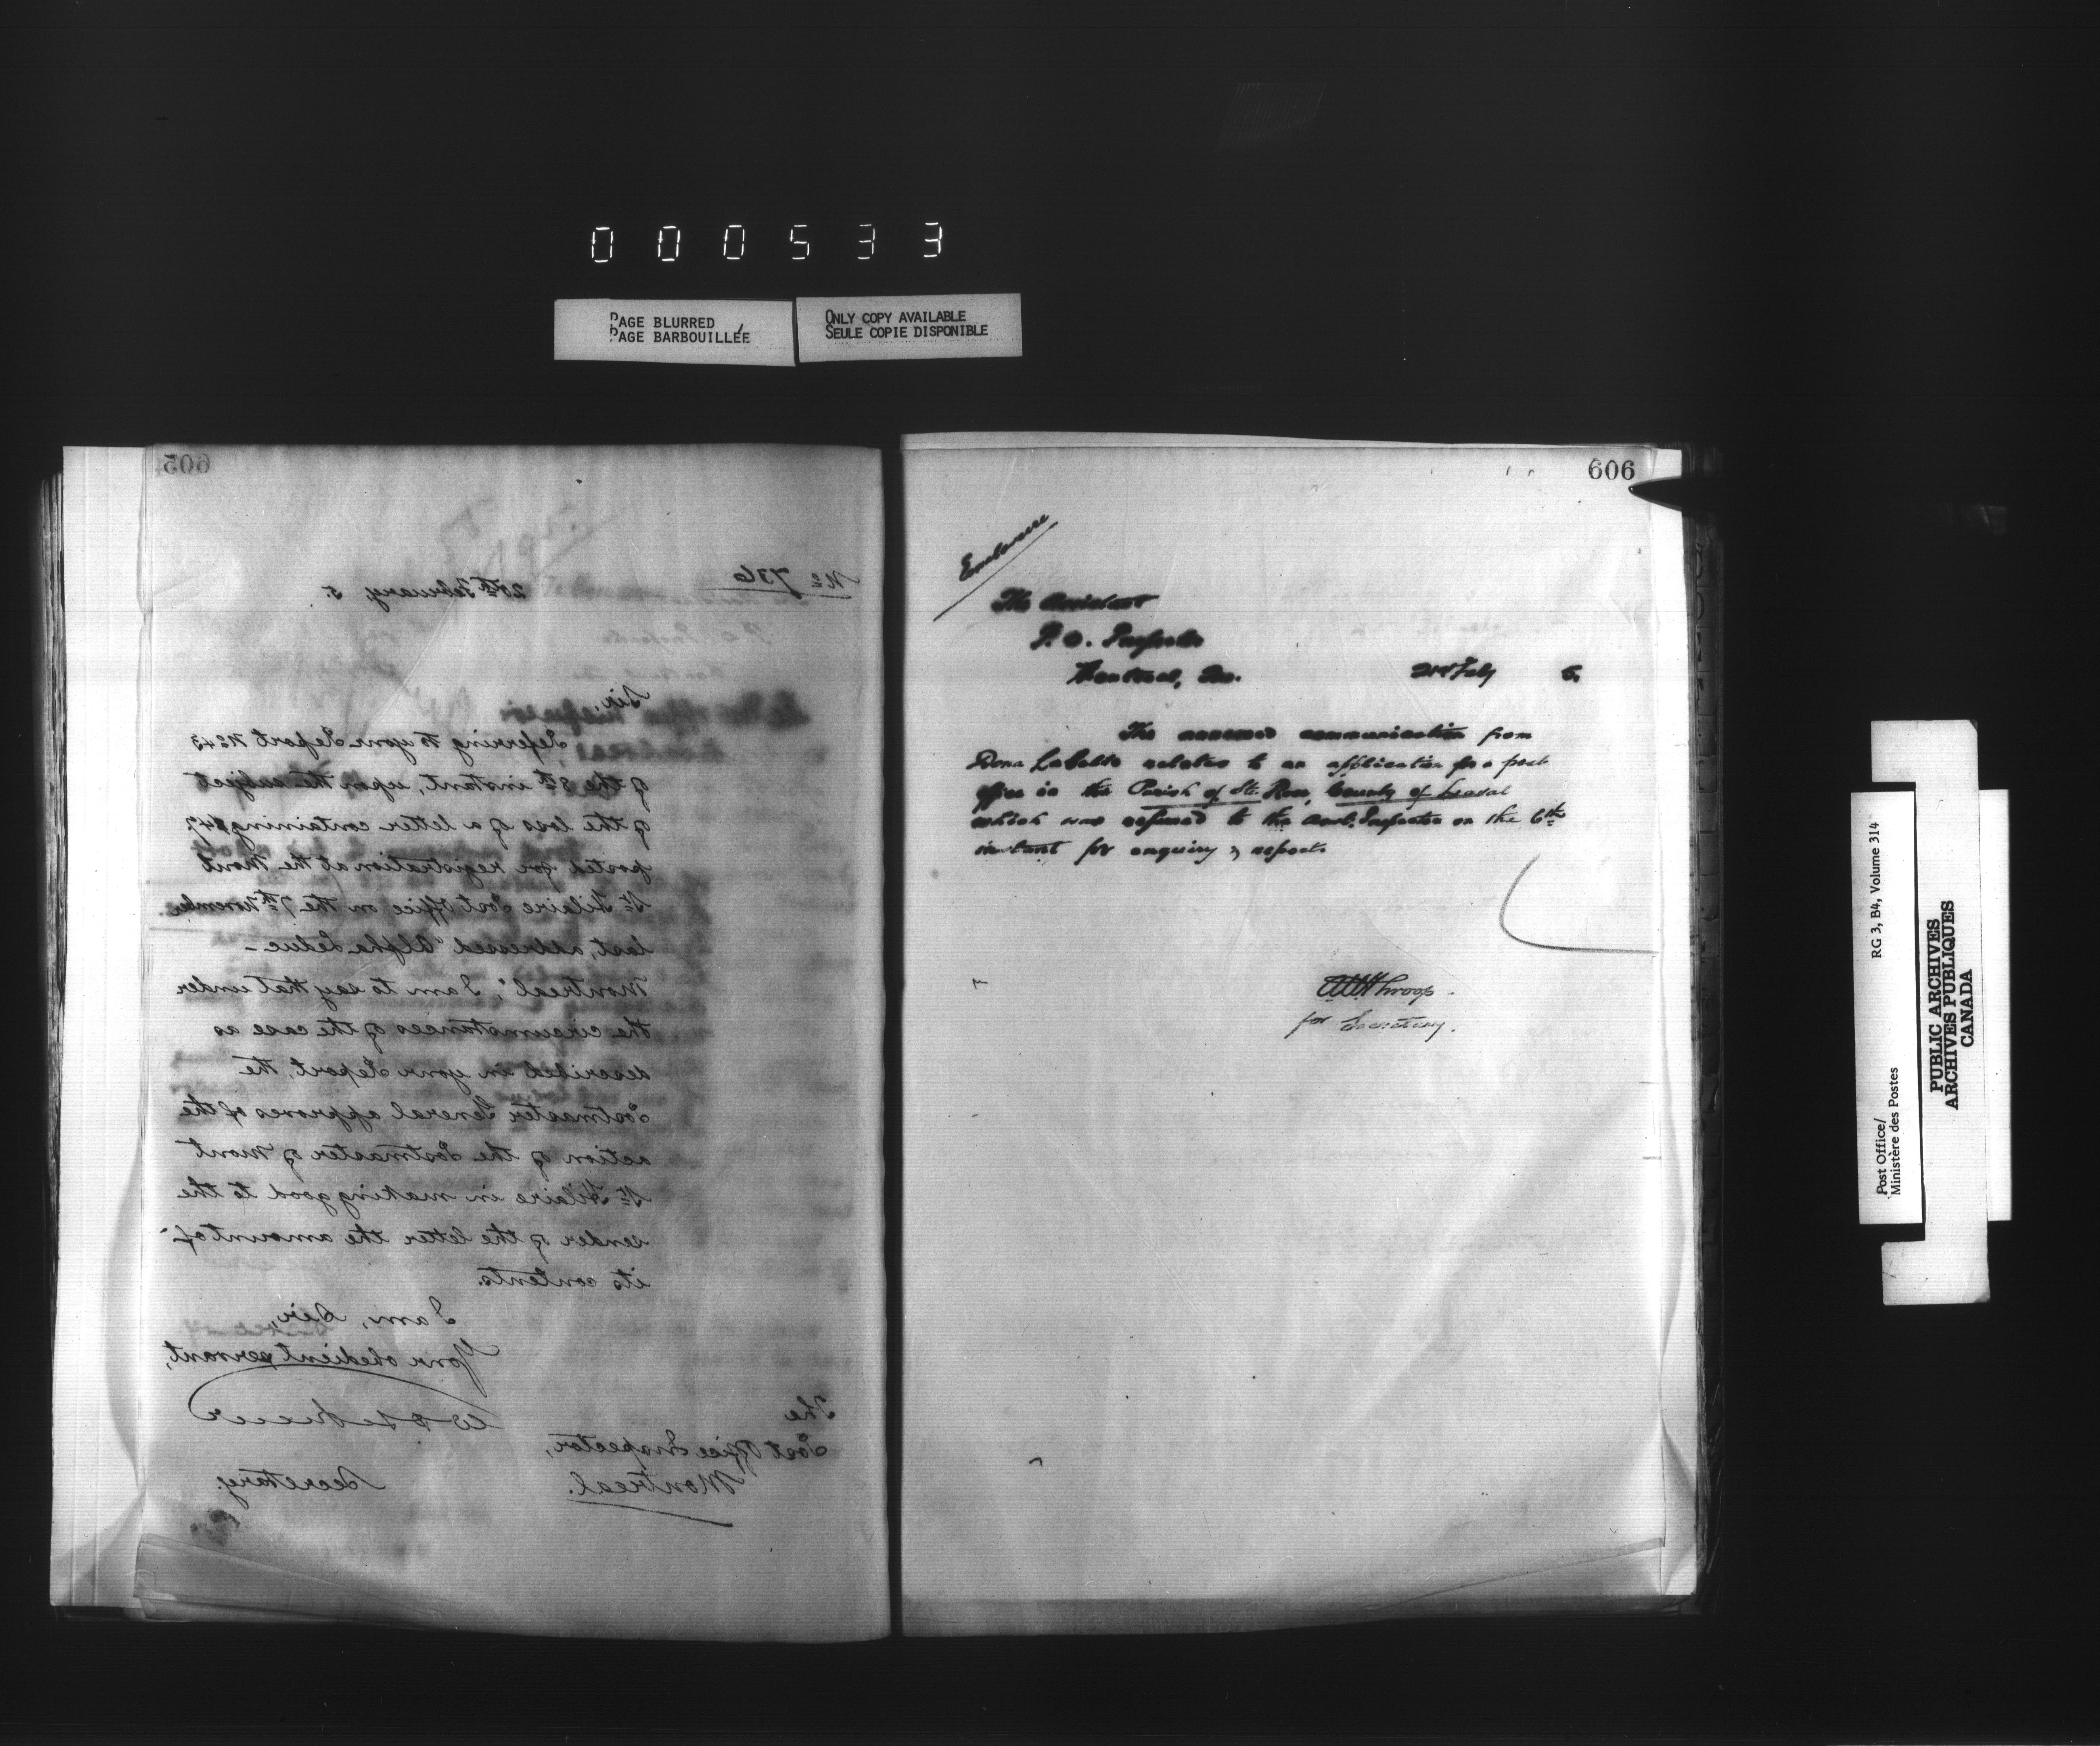 000533
PAGE BLURRED
PAGE BARBOUILLÉE
ONLY COPY AVAILABLE
SEULE COPIE DISPONIBLE
605
No 736
20th February, 5.
Sir,
Referring to your Report No 43
of the 3th instant, upon the subject
of the loss of a letter containing $47
posted for registration at the Mont
St Hilaire Post Office on the 7th November
last, addressed "Alpha Leduc -
Montreal", I am to say that under
the circumstances of the case as
described in your Report, the
Postmaster General approves of the
action of the Postmaster of Mont
St Hilaire in making good to the
sender of the letter the amount of
its contents.
I am, Sir,
Your obedient servant,
Secretary.
The
Post Office Inspector,
Montreal.
606
Enclosure
The Assistant
P. O. Inspector
Montreal, Que.
21st Feby 5.
The annexed communication from
Dona Labelle relates to an application for a post
office in the Parish of Ste. Rose, County of Laval
which was referred to the Asst. Inspector on the 6th
instant for enquiry & report.
Throop.
for Secretary.
Post Office/
Ministère des Postes
RG 3, B4, Volume 314
PUBLIC ARCHIVES
ARCHIVES PUBLIQUES
CANADA